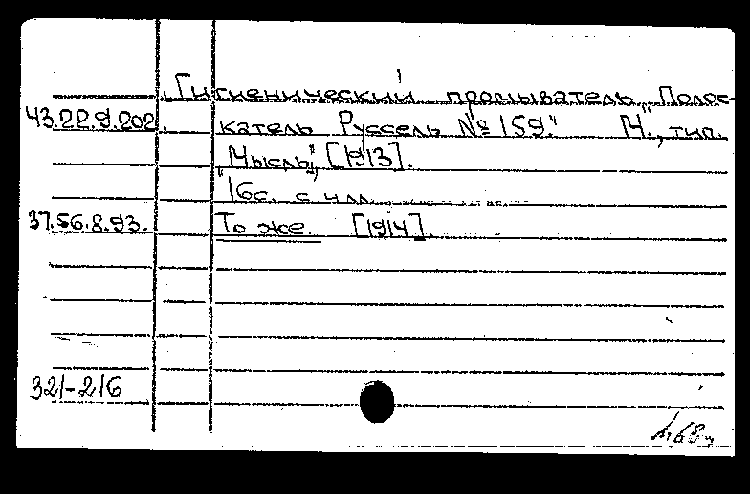 Гигиенический промыватель „Полос-
43.22.9.202. катель Руссель № 159." М., тип.
„Мысль", [1913].
16с. с илл.
37.56.8.93. То же. [1914].
321-216